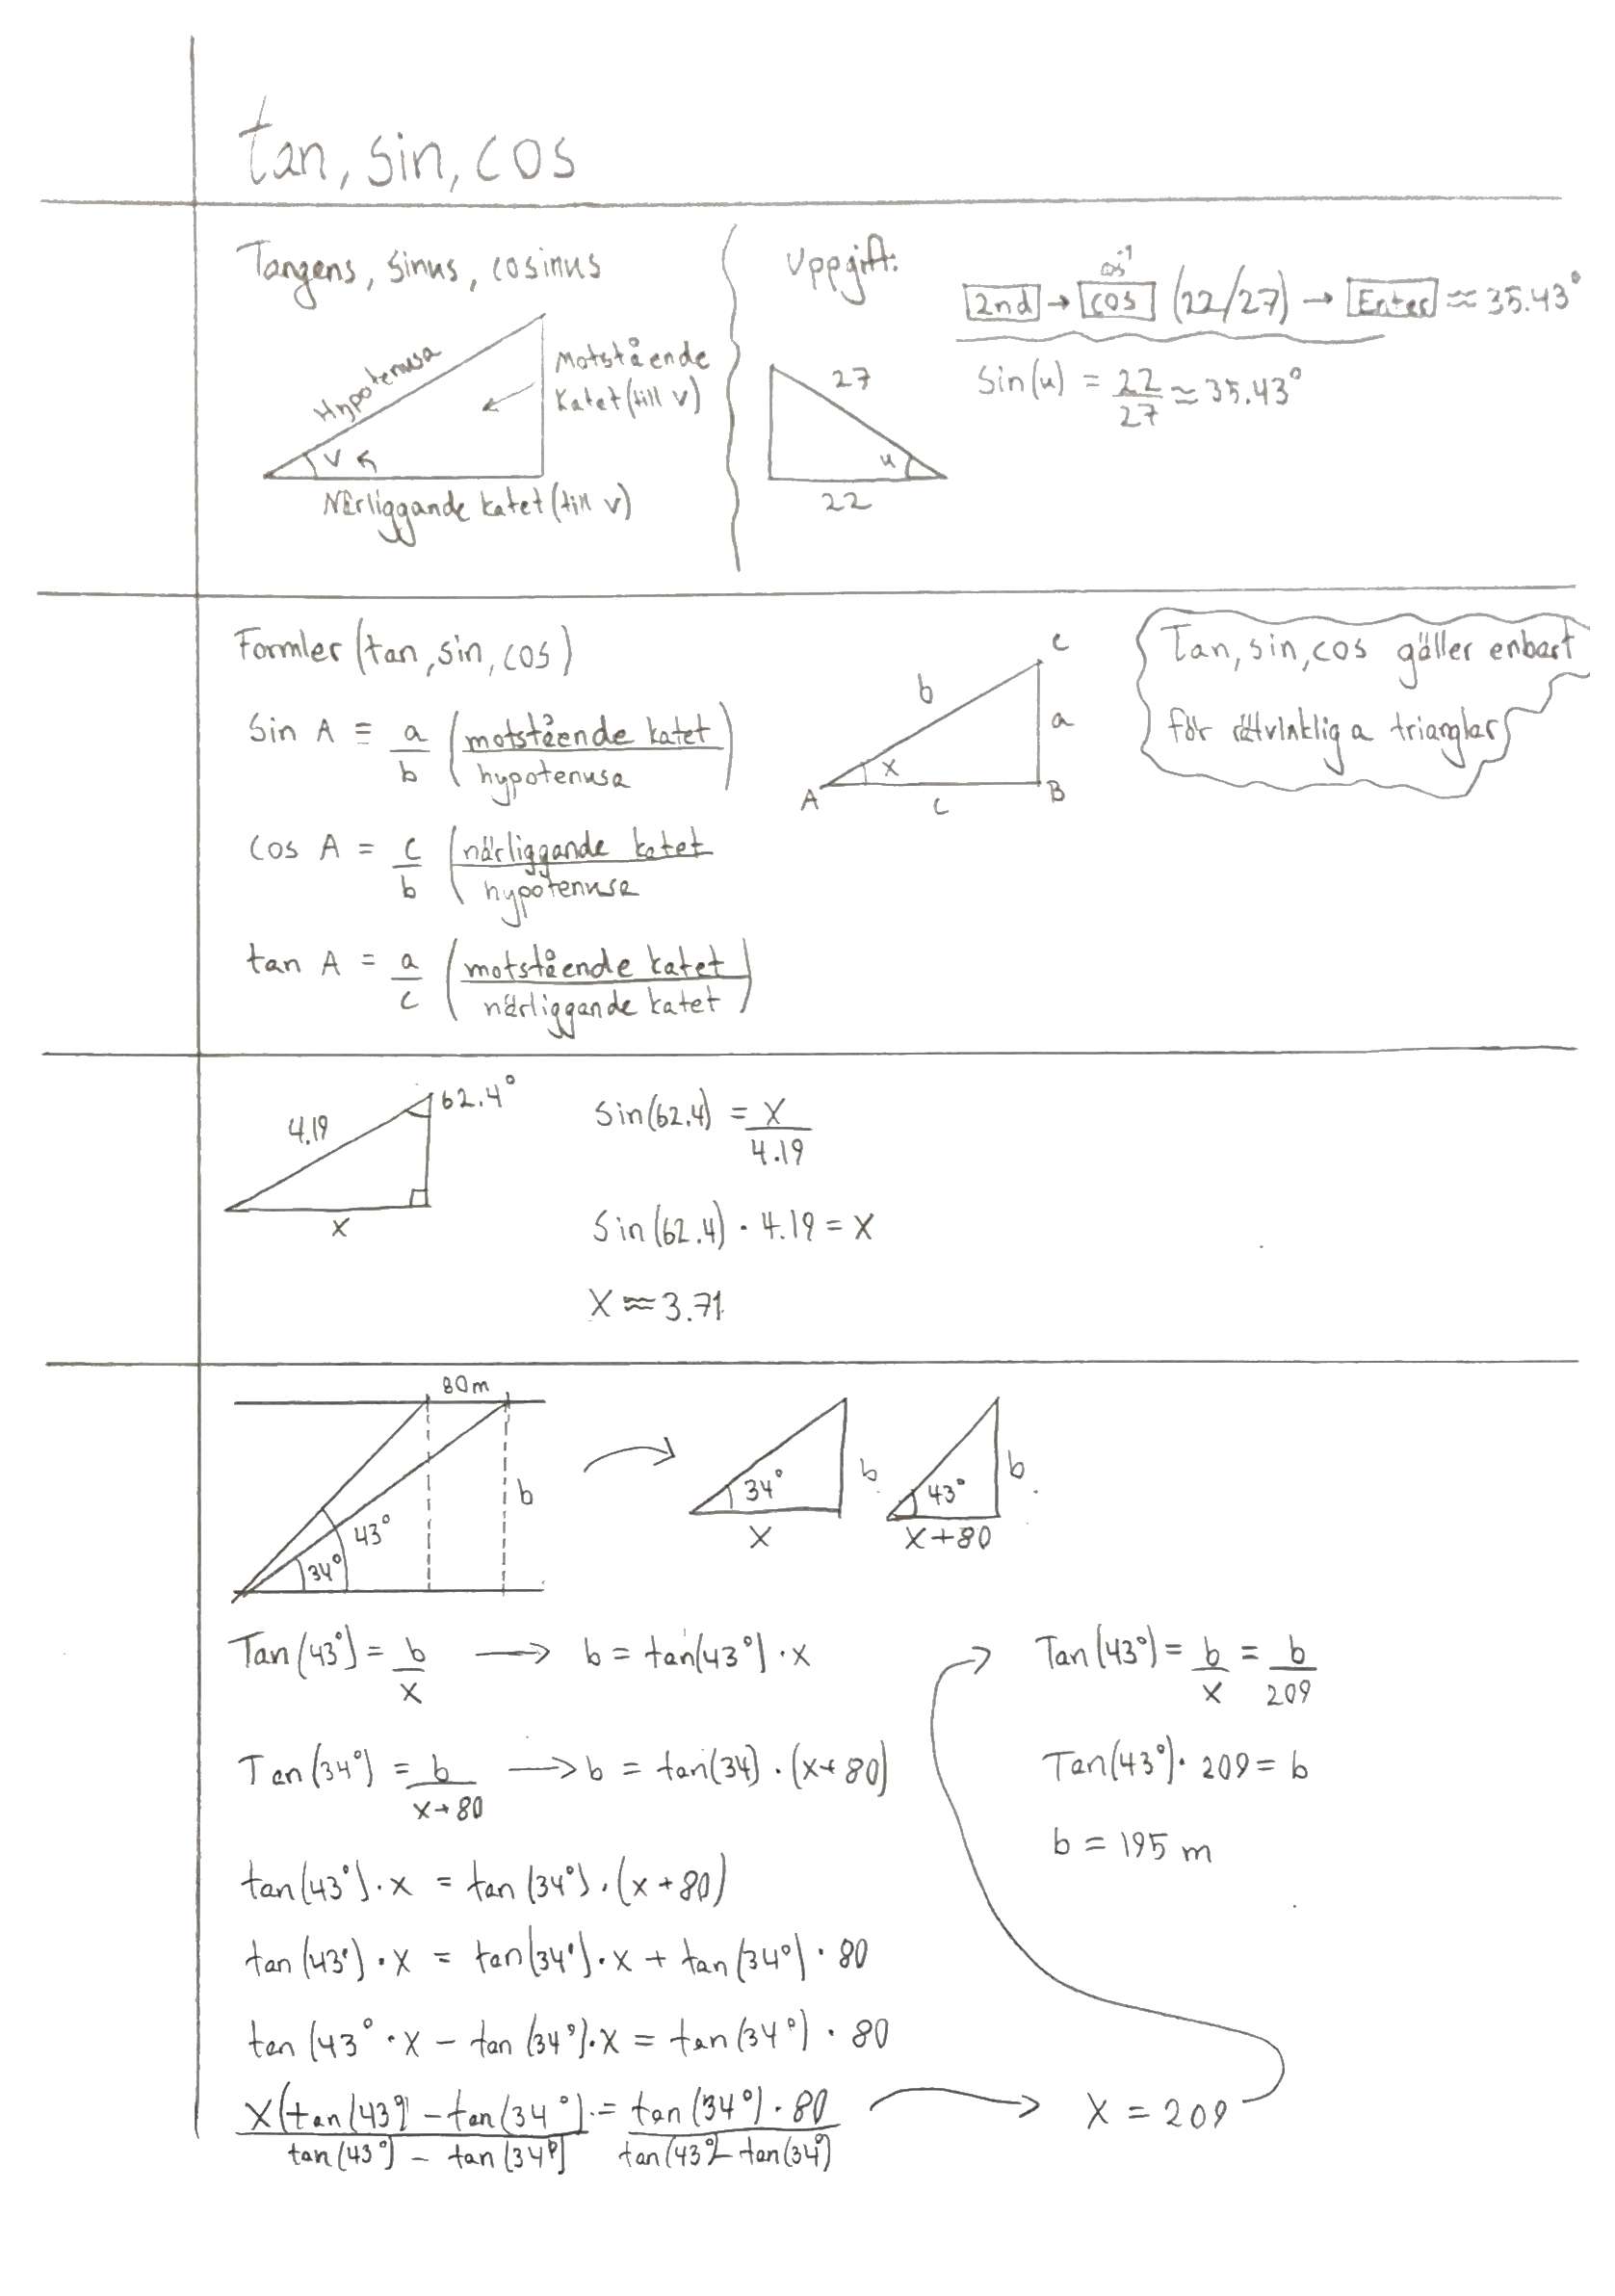 tan, sin, cos
Tangens, sinus, cosinus
Hypotenusa
Motstående
Katet (till v)
v
Närliggande katet (till v)
Uppgift:
cos⁻¹
2nd → cos (22/27) → Enter ≈ 35.43°
Sin(u) = 22/27 ≈ 35.43°
27
u
22
Formler (tan, sin, cos)
Sin A = a/b (motstående katet/hypotenusa)
cos A = c/b (närliggande katet/hypotenusa
tan A = a/c (motstående katet/närliggande katet)
C
b
a
x
A
c
B
Tan, sin, cos gäller enbart
för rätvinkliga trianglar
62.4°
4.19
x
Sin(62.4) = x/4.19
Sin(62.4) · 4.19 = x
x ≈ 3.71
80m
b
43°
34°
34°
b
x
43°
b
x+80
Tan(43°) = b/x → b = tan(43°) · x
Tan(34°) = b/x+80 → b = tan(34) · (x+80)
tan(43°) · x = tan(34°) · (x+80)
tan(43°) · x = tan(34°) · x + tan(34°) · 80
tan(43° · x – tan(34°) · x = tan(34°) · 80
x(tan(43°) – tan(34°)/tan(43°) – tan(34°) = tan(34°) · 80/tan(43°) – tan(34°) → x = 209
Tan(43°) = b/x = b/209
Tan(43°) · 209 = b
b = 195 m